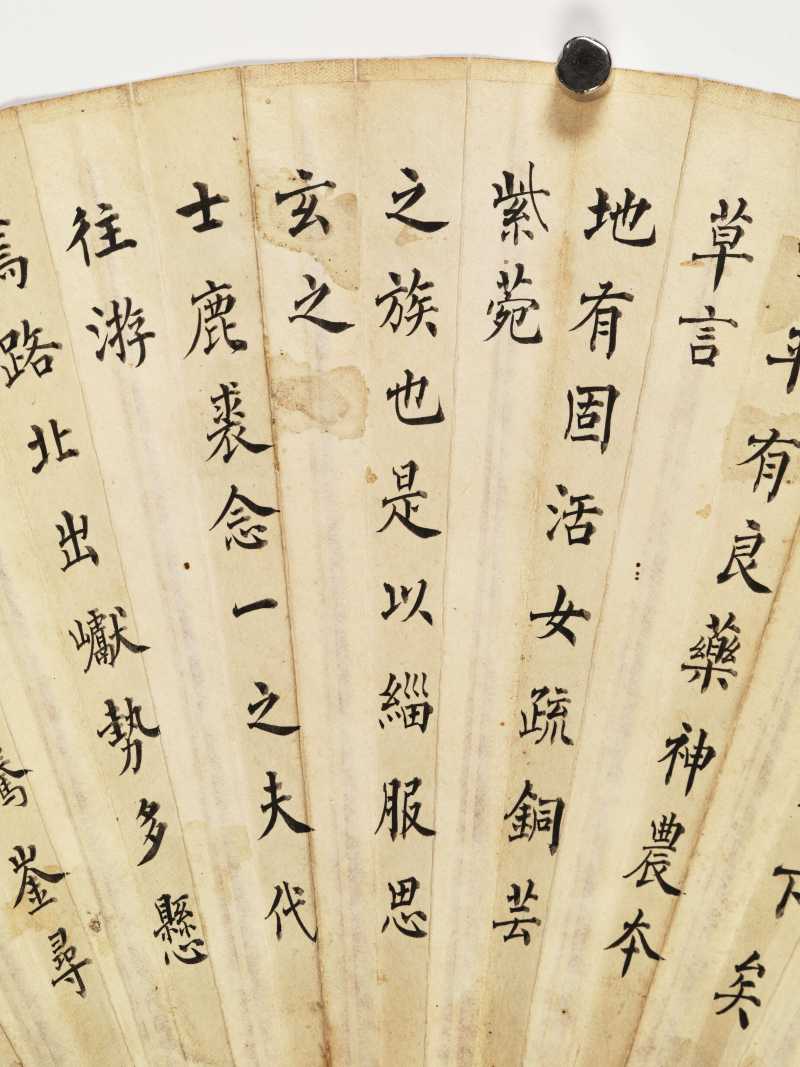 矣
平有良藥神農本
草言
地有固活女疏銅芸
紫菀
之族也是以緇服思
玄之
士鹿裘念一之夫代
往游
焉路北出巘勢多懸
崟尋